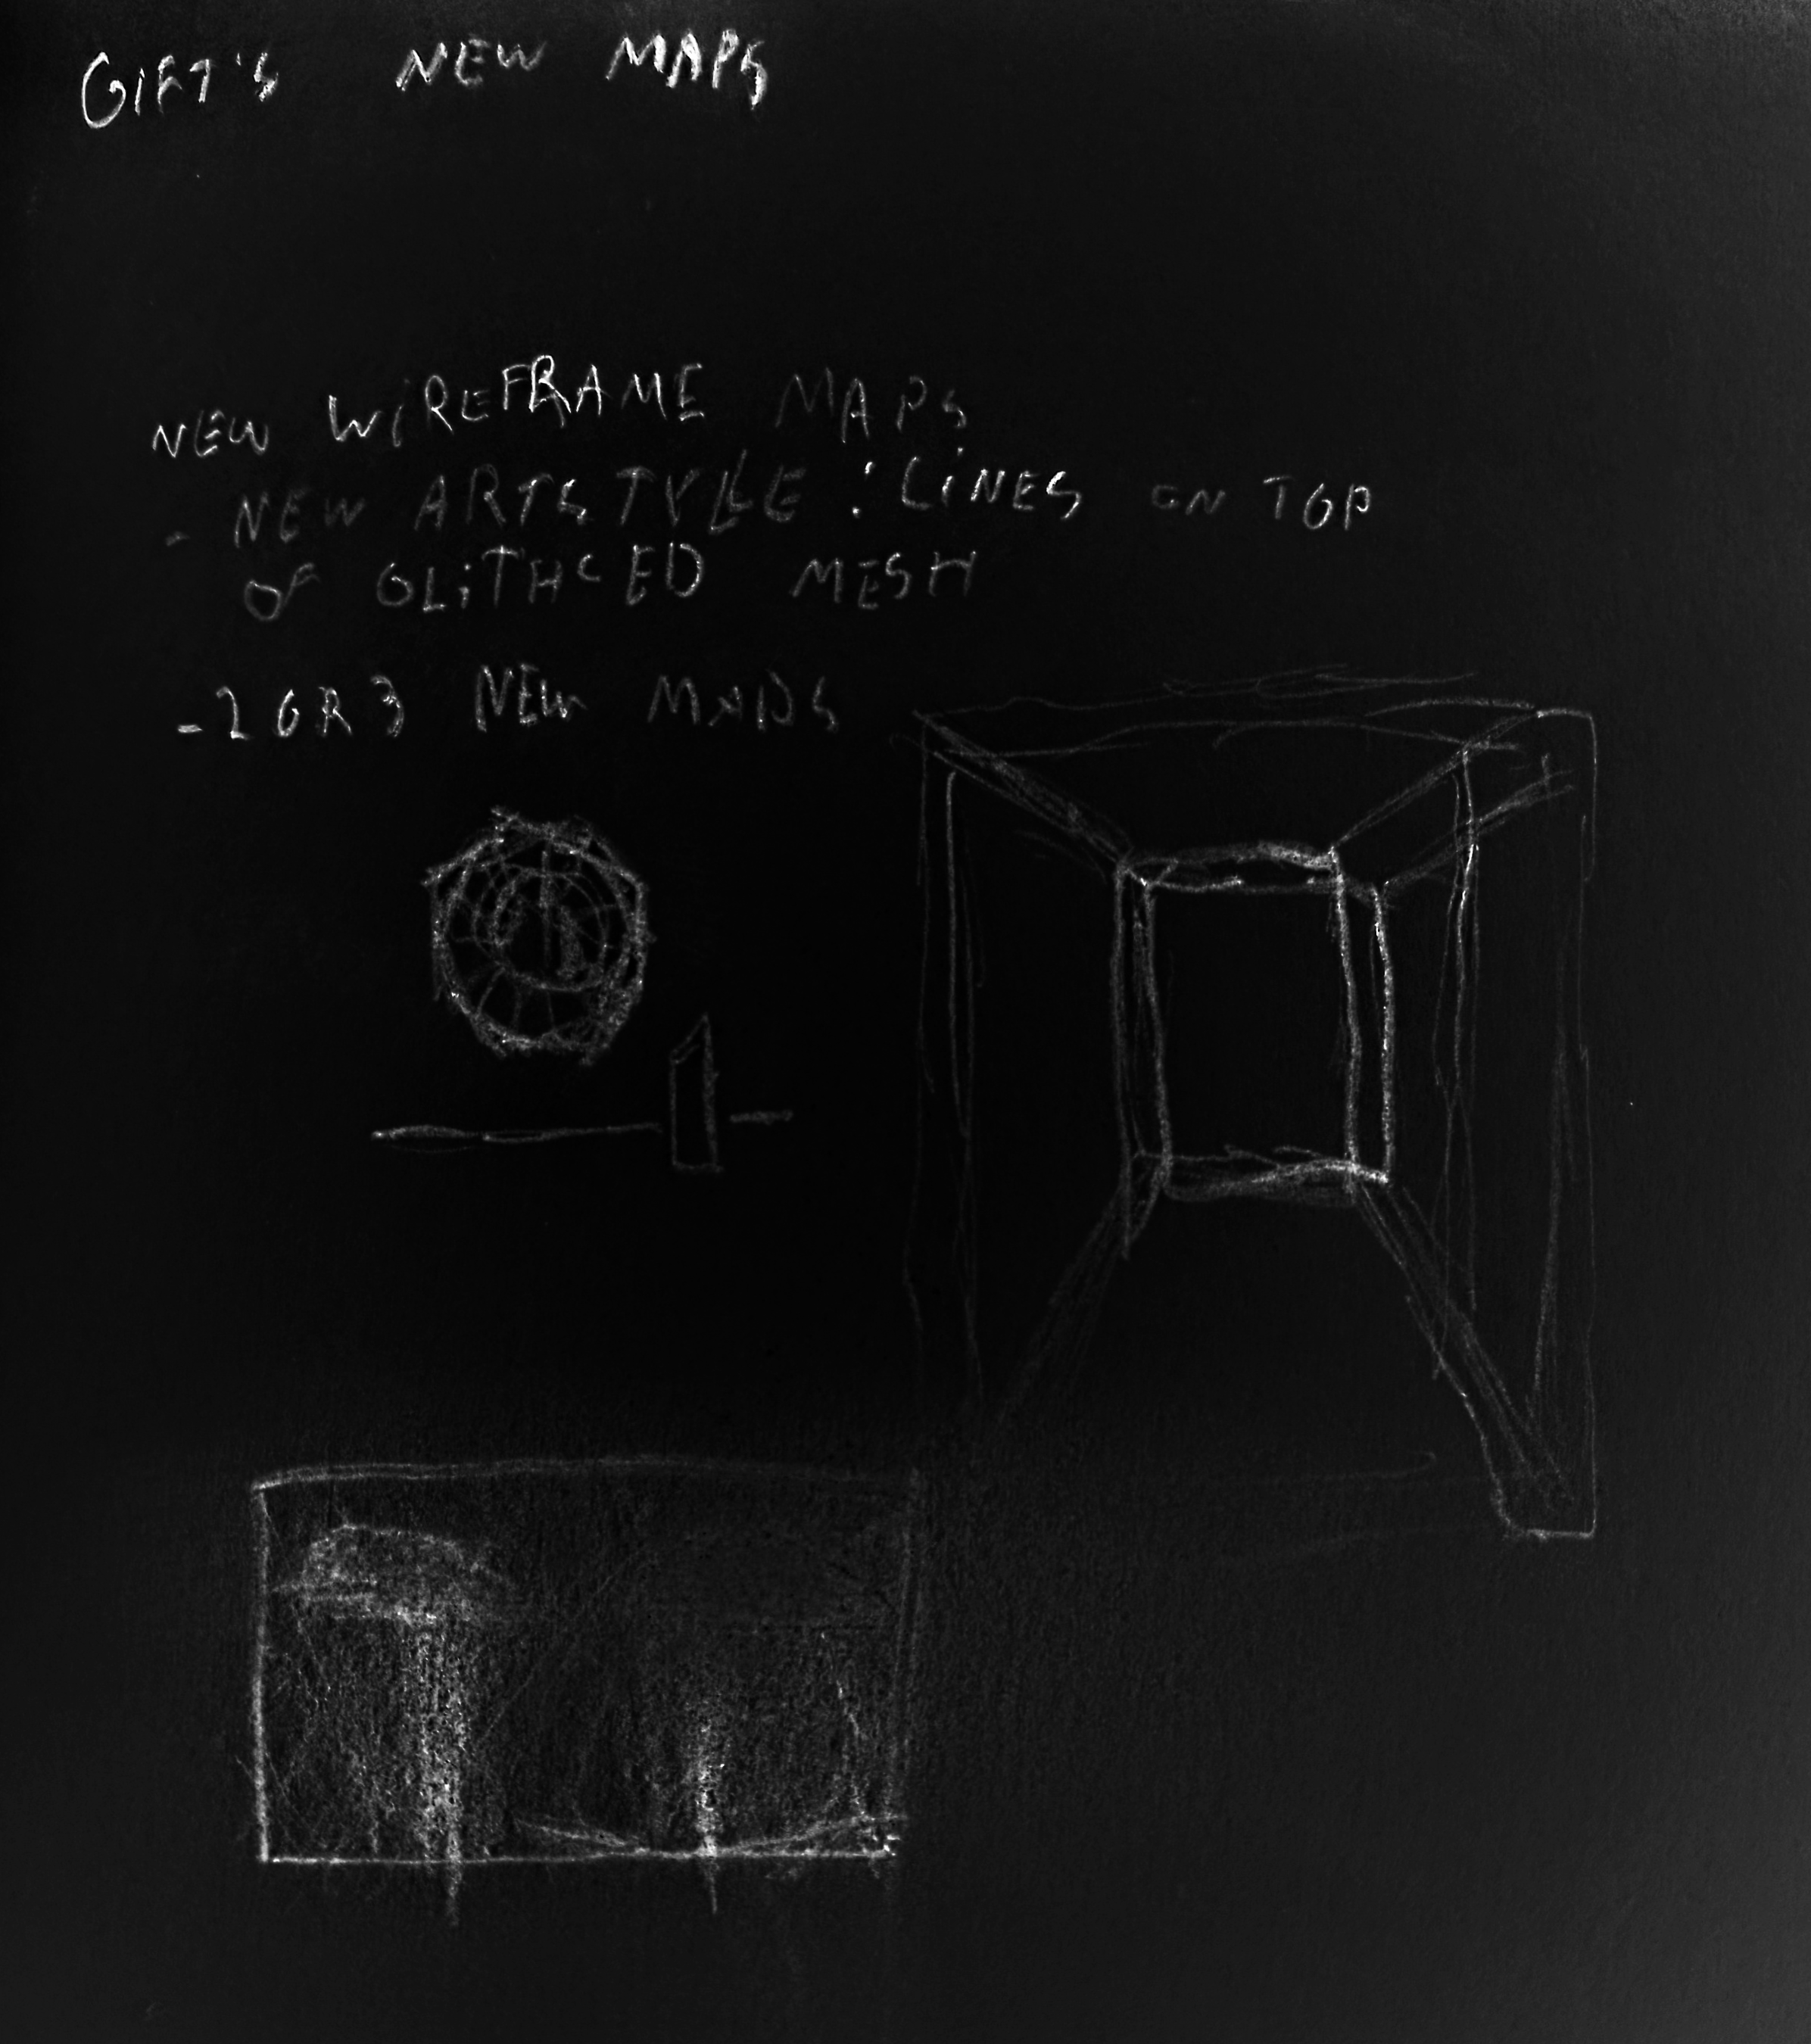 GIFT'S NEW MAPS
NEW WIREFRAME MAPS
- NEW ARTSTYLE : LINES ON TOP
OF GLITHCED MESH
- 2 OR 3 NEW MAPS